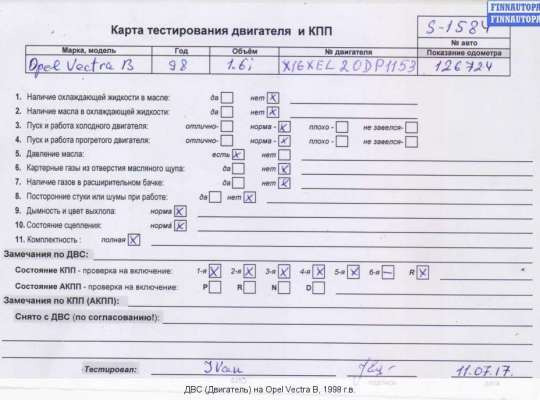 FINNAUTOPA
FINNAUTOPA
Карта тестирования двигателя и КПП
S-1584
№ авто
Марка, модель Год Объём № двигателя Показание одометра
Opel Vectra B 98 1.6i X16XEL 20DP1153 126724
1. Наличие охлаждающей жидкости в масле: да нет x
2. Наличие масла в охлаждающей жидкости: да нет x
3. Пуск и работа холодного двигателя: отлично- норма - x плохо - не завелся-
4. Пуск и работа прогретого двигателя: отлично- норма - x плохо - не завелся-
5. Давление масла: есть x нет
6. Картерные газы из отверстия масляного щупа: да нет x
7. Наличие газов в расширительном бачке: да нет x
8. Посторонние стуки или шумы при работе: да нет x
9. Дымность и цвет выхлопа: норма x
10. Состояние сцепления: норма x
11. Комплектность : полная x
Замечания по ДВС:
Состояние КПП - проверка на включение: 1-я x 2-я x 3-я x 4-я x 5-я x 6-я – R x
Состояние АКПП - проверка на включение: P R N D
Замечания по КПП (АКПП):
Снято с ДВС (по согласованию!):
Тестировал: Ivan 11.07.17.
ПОДПИСЬ ДАТА
ДВС (Двигатель) на Opel Vectra B, 1998 г.в.